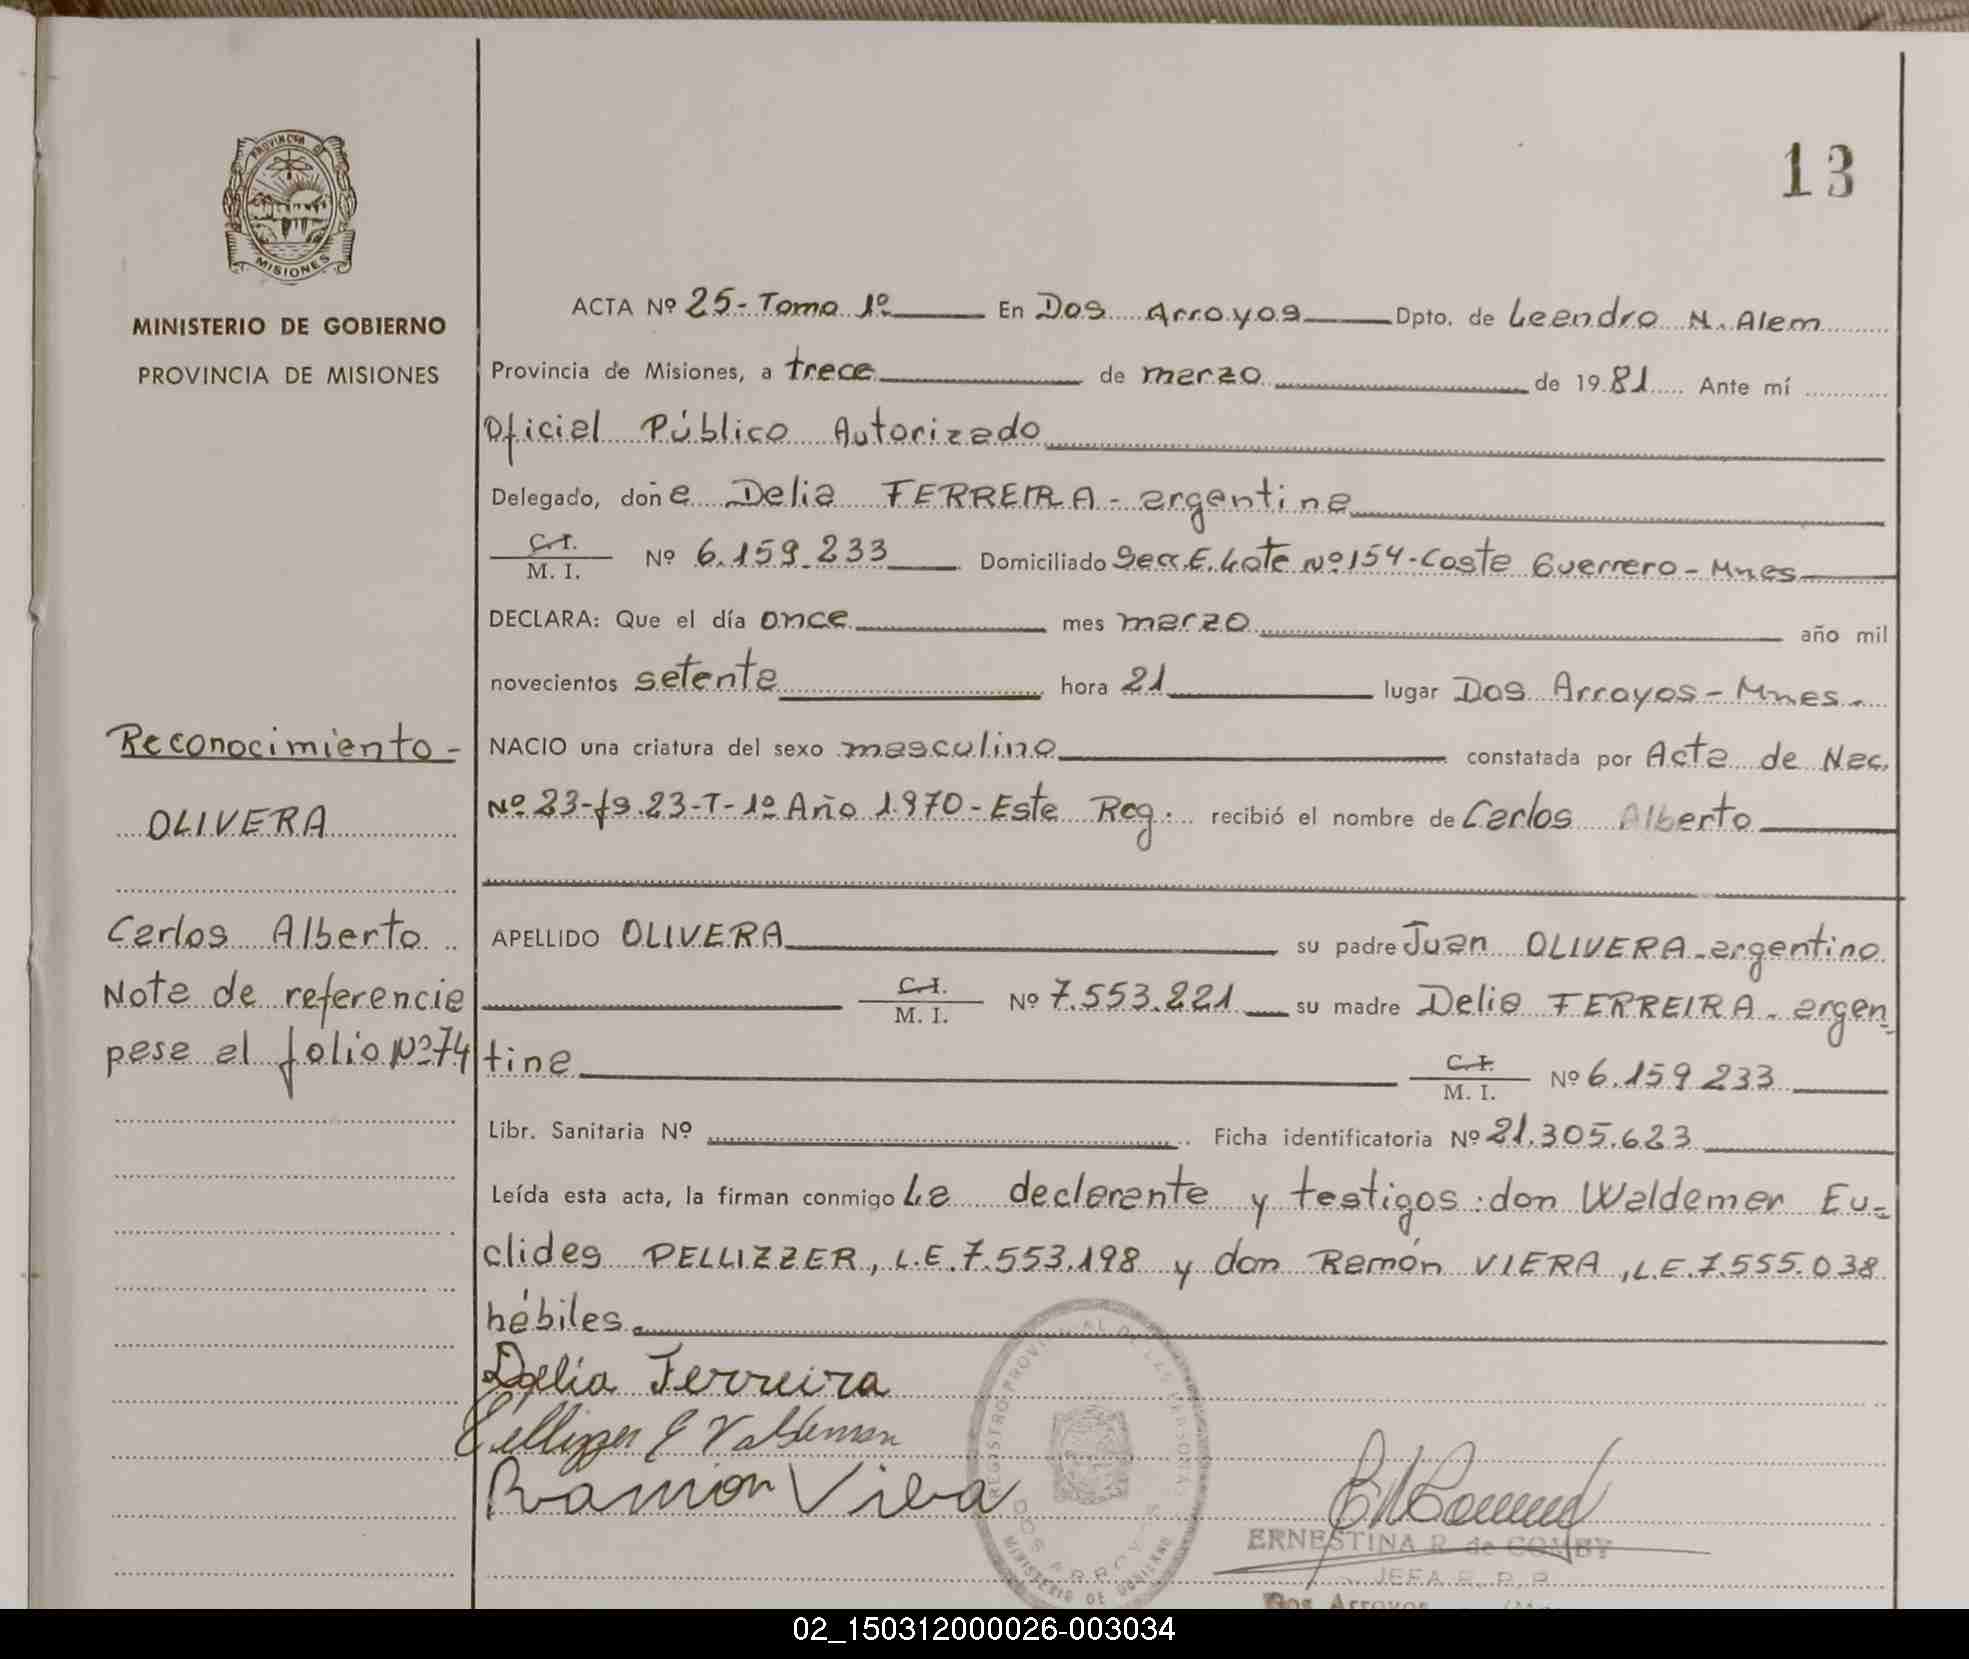 13
PROVINCIA DE
MISIONES
MINISTERIO DE GOBIERNO
PROVINCIA DE MISIONES
ACTA Nº 25-Tomo 1º En Dos Arroyos Dpto. de Leandro N. Alem
Provincia de Misiones, a trece de marzo de 1981 Ante mí
Oficial Público Autorizado
Delegado, doña Delia FERREIRA - argentina
C.I.
M. I. Nº 6.159.233 Domiciliado Secc. E. Lote Nº 154-Costa Guerrero - Mnes
DECLARA: Que el día once mes marzo año mil
novecientos setenta hora 21 lugar Dos Arroyos - Mnes.
NACIO una criatura del sexo masculino constatada por Acta de Nac.
Nº 23-fs.23-T-1º Año 1.970 - Este Reg. recibió el nombre de Carlos Alberto
APELLIDO OLIVERA su padre Juan OLIVERA - argentino
C.I.
M. I. Nº 7.553.221 su madre Delia FERREIRA - argen
tina C.I.
M. I. Nº 6.159.233
Libr. Sanitaria Nº Ficha identificatoria Nº 21.305.623
Leída esta acta, la firman conmigo La declarante y testigos: don Waldemar Eu=
clides PELLIZZER, L.E. 7.553.198 y don Ramón VIERA, L.E. 7.555.038
hábiles.
Reconocimiento -
OLIVERA
Carlos Alberto
Nota de referencia
pasa al folio Nº 74
Delia Ferreira
Ramon Viera
REGISTRO PROVINCIAL DE LAS PERSONAS
DOS ARROYOS
MINISTERIO DE GOBIERNO
ERNESTINA R. de COMBY
JEFA R. P. P.
Dos Arroyos
02_150312000026-003034